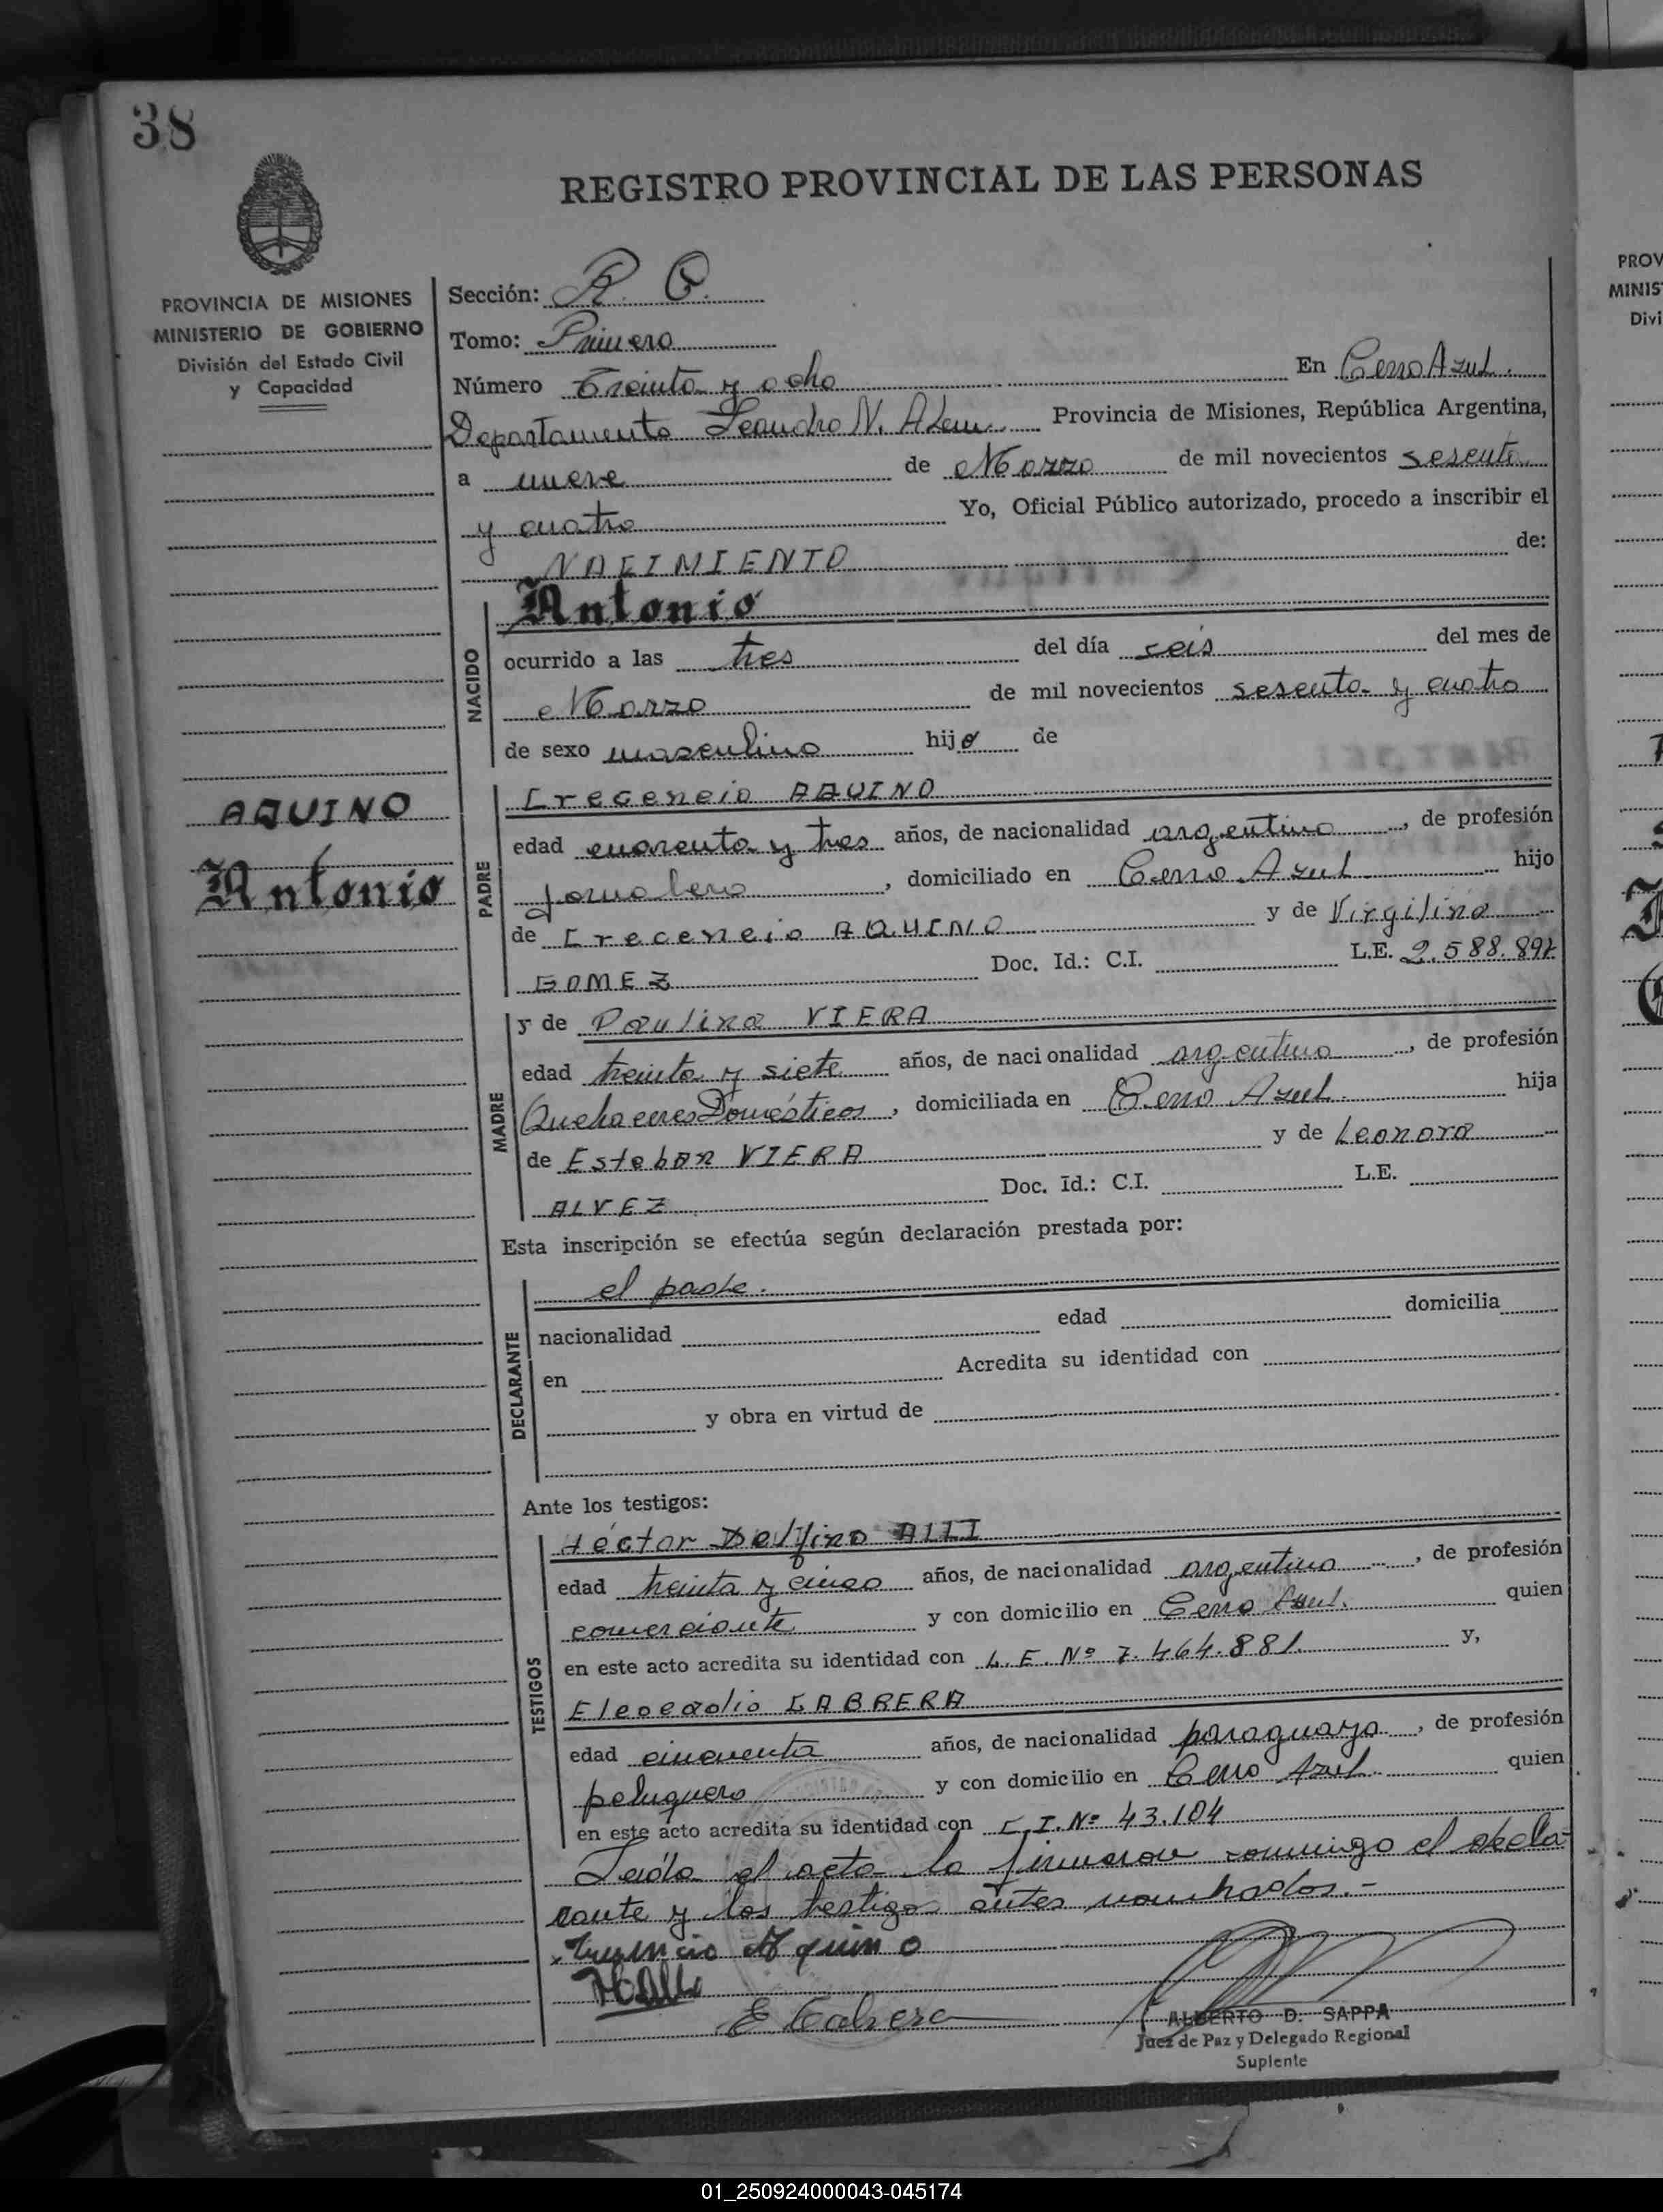 38
REGISTRO PROVINCIAL DE LAS PERSONAS
PROVINCIA DE MISIONES
MINISTERIO DE GOBIERNO
División del Estado Civil
y Capacidad
Sección: R. O.
Tomo: Primero
Número Treinta y ocho En Cerro Azul.
Departamento Leandro N. Alem. Provincia de Misiones, República Argentina,
a nueve de Marzo de mil novecientos sesenta
y cuatro Yo, Oficial Público autorizado, procedo a inscribir el
NACIMIENTO de:
NACIDO
Antonio
ocurrido a las tres del día seis del mes de
Marzo de mil novecientos sesenta y cuatro
de sexo masculino hijo de
AQUINO
Antonio
PADRE
Crecencio AQUINO
edad cuarenta y tres años, de nacionalidad argentino, de profesión
jornalero, domiciliado en Cerro Azul hijo
de Crecencio AQUINO y de Virgilina
GOMEZ Doc. Id.: C.I. L.E. 2.588.892
MADRE
y de Paulina VIERA
edad treinta y siete años, de nacionalidad argentina, de profesión
Quehaceres Domésticos, domiciliada en Cerro Azul. hija
de Esteban VIERA y de Leonora
ALVEZ Doc. Id.: C.I. L.E.
Esta inscripción se efectúa según declaración prestada por:
DECLARANTE
el padre.
nacionalidad edad domicilia
en Acredita su identidad con
y obra en virtud de
Ante los testigos:
TESTIGOS
Héctor Delfino ALLI
edad treinta y cinco años, de nacionalidad argentino, de profesión
comerciante y con domicilio en Cerro Azul. quien
en este acto acredita su identidad con L.E. Nº 7.464.881. y,
Eleocadio CABRERA
edad cincuenta años, de nacionalidad paraguaya, de profesión
peluquero y con domicilio en Cerro Azul. quien
en este acto acredita su identidad con C.I. Nº 43.104
Leída el acta la firmaron conmigo el decla-
rante y los testigos antes nombrados.-
Aquino
E Cabrera
ALBERTO D. SAPPA
Juez de Paz y Delegado Regional
Suplente
PROV
MINIS
Divi
01_250924000043-045174